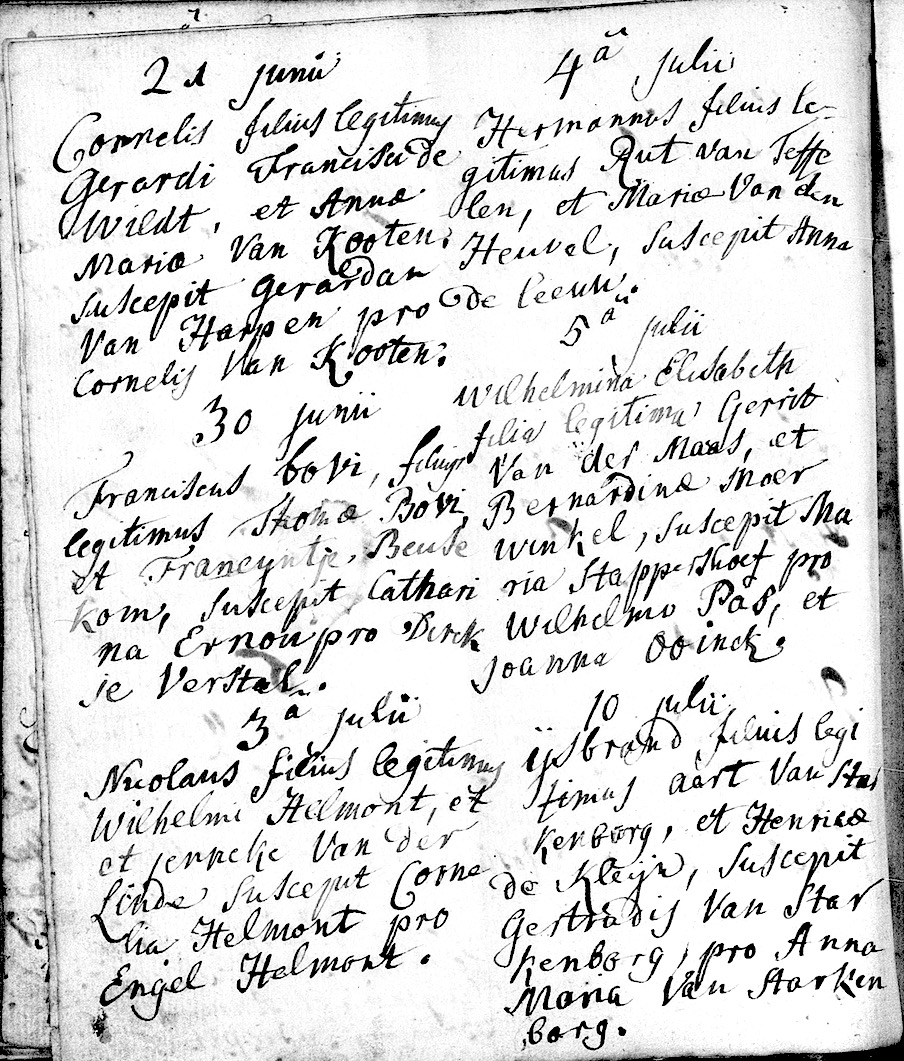 21 junii
Cornelis filius legitimus
Gerardi Francisci de
Wildt, et Annæ
Mariæ Van Kooten:
suscepit Gerardan
Van Harpen pro
Cornelis Van Kooten:
30 junii
Franciscus bovi, filius
legitimus Thomæ Bovi
et Francyntje Beuse
kom, suscepit Cathari
na Ernou pro Dirck
je Verstal.
3ª julii
Nicolaus filius legitimus
Wilhelmi Helmont, et
et jenneke Van der
Linde suscepit Corne
lia Helmont pro
Engel Helmont.
4ª julii
Hermannus filius le-
gitimus Rut van Teffe
len, et Mariæ Van den
Heuvel, suscepit Anna
de leeuw.
5ª julii
Wilhelmina Elisabeth
filia legitima Gerrit
Van der Maas, et
Bernardinæ Moer
winkel, suscepit Ma
ria Stappershoef pro
Wilhelmo Pas, et
Joanna Ooinck.
10 julii
ijsbrand filius legi
timus aart Van Star
kenborg, et Henricæ
de Kleijn, suscepit
Gertrudis Van Star
kenborg, pro Anna
Maria Van Starken
borg.